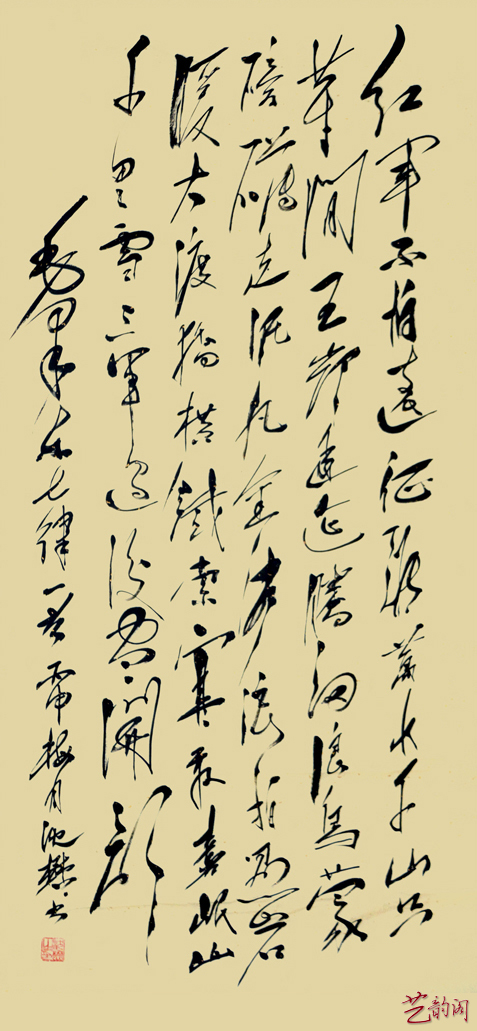 红軍不怕遠征難萬水千山只
等閒五嶺逶迤騰細浪烏蒙
磅礴走泥丸金沙浪拍雲崖
暖大渡橋橫鐵索寒更喜岷山
千里雪三軍過後盡開顏
毛澤東七律一首梅月書
艺韵阁